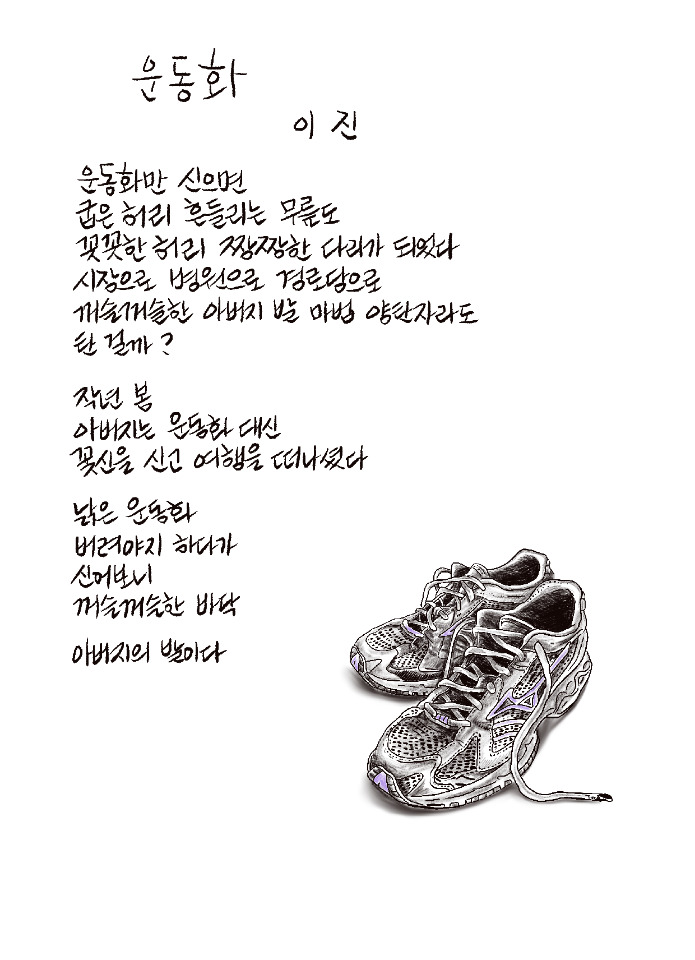 운동화
이 진
운동화만 신으면
굽은 허리 흔들리는 무릎도
꼿꼿한 허리 짱짱한 다리가 되었다
시장으로 병원으로 경로당으로
꺼슬꺼슬한 아버지 발 마법 양탄자라도
탄 걸까?
작년 봄
아버지는 운동화 대신
꽃신을 신고 여행을 떠나셨다
낡은 운동화
버려야지 하다가
신어보니
꺼슬꺼슬한 바닥
아버지의 발이다